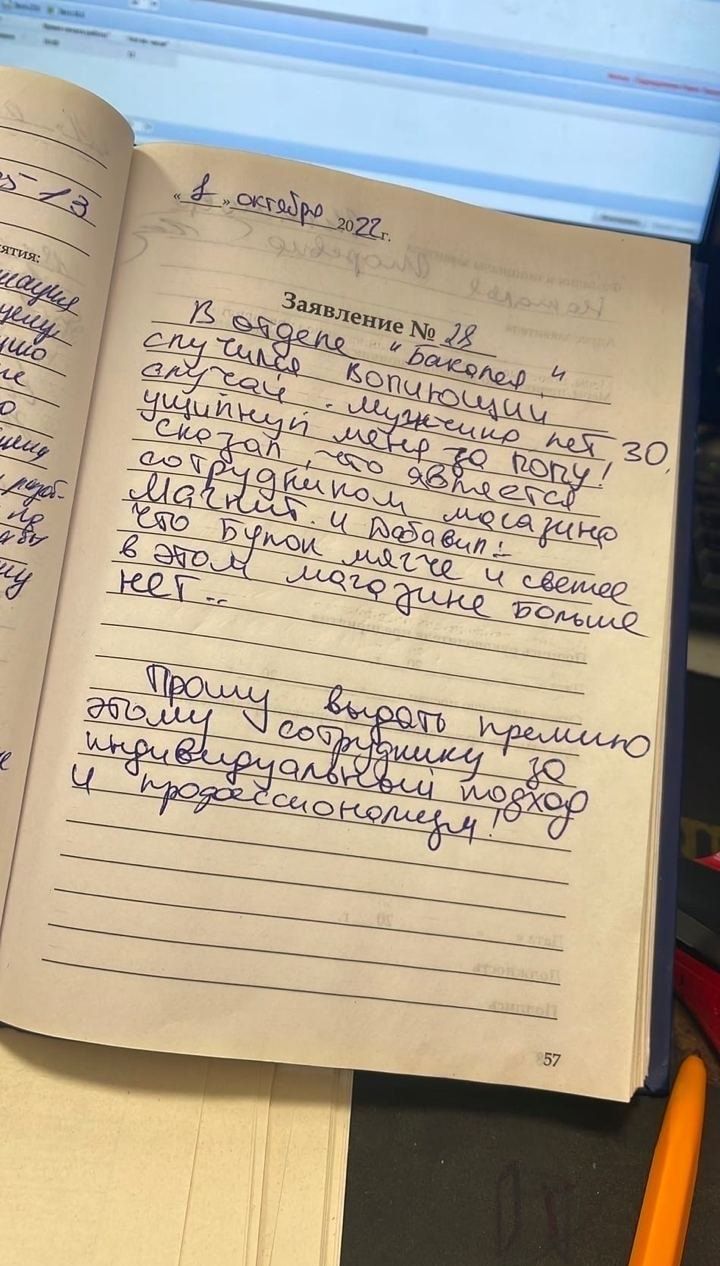 5-13
ятия:
" 1 " октября 2022г.
Заявление № 28
В отделе "Бакалея"
случился вопиющий
случай. Мужчина лет 30,
ущипнул меня за попу!
сказал, что является
сотрудником магазина
Магнит. И добавил:-
что булок мягче и свежее
в этом магазине больше
нет..
Прошу выдать премию
этому сотруднику за
индивидуальный подход
и профессионализм!
57